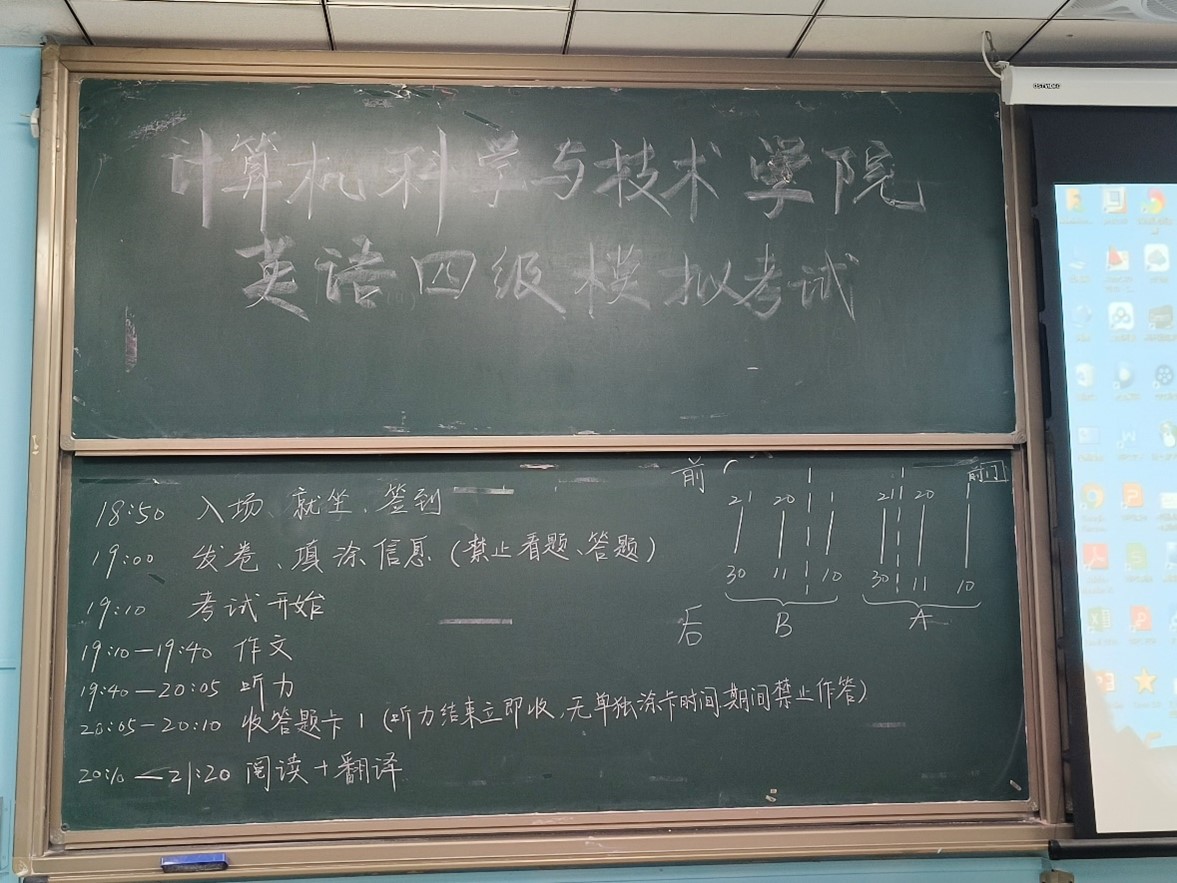 计算机科学与技术学院
英语四级模拟考试
18:50 入场、就坐、签到
19:00 发卷、填涂信息(禁止看题、答题)
19:10 考试开始
19:10—19:40 作文
19:40—20:05 听力
20:05—20:10 收答题卡1(听力结束立即收,无单独涂卡时间,期间禁止作答)
20:10—21:20 阅读+翻译
前 前门
21 20 1 21 20 1
30 11 10 30 11 10
后 B A